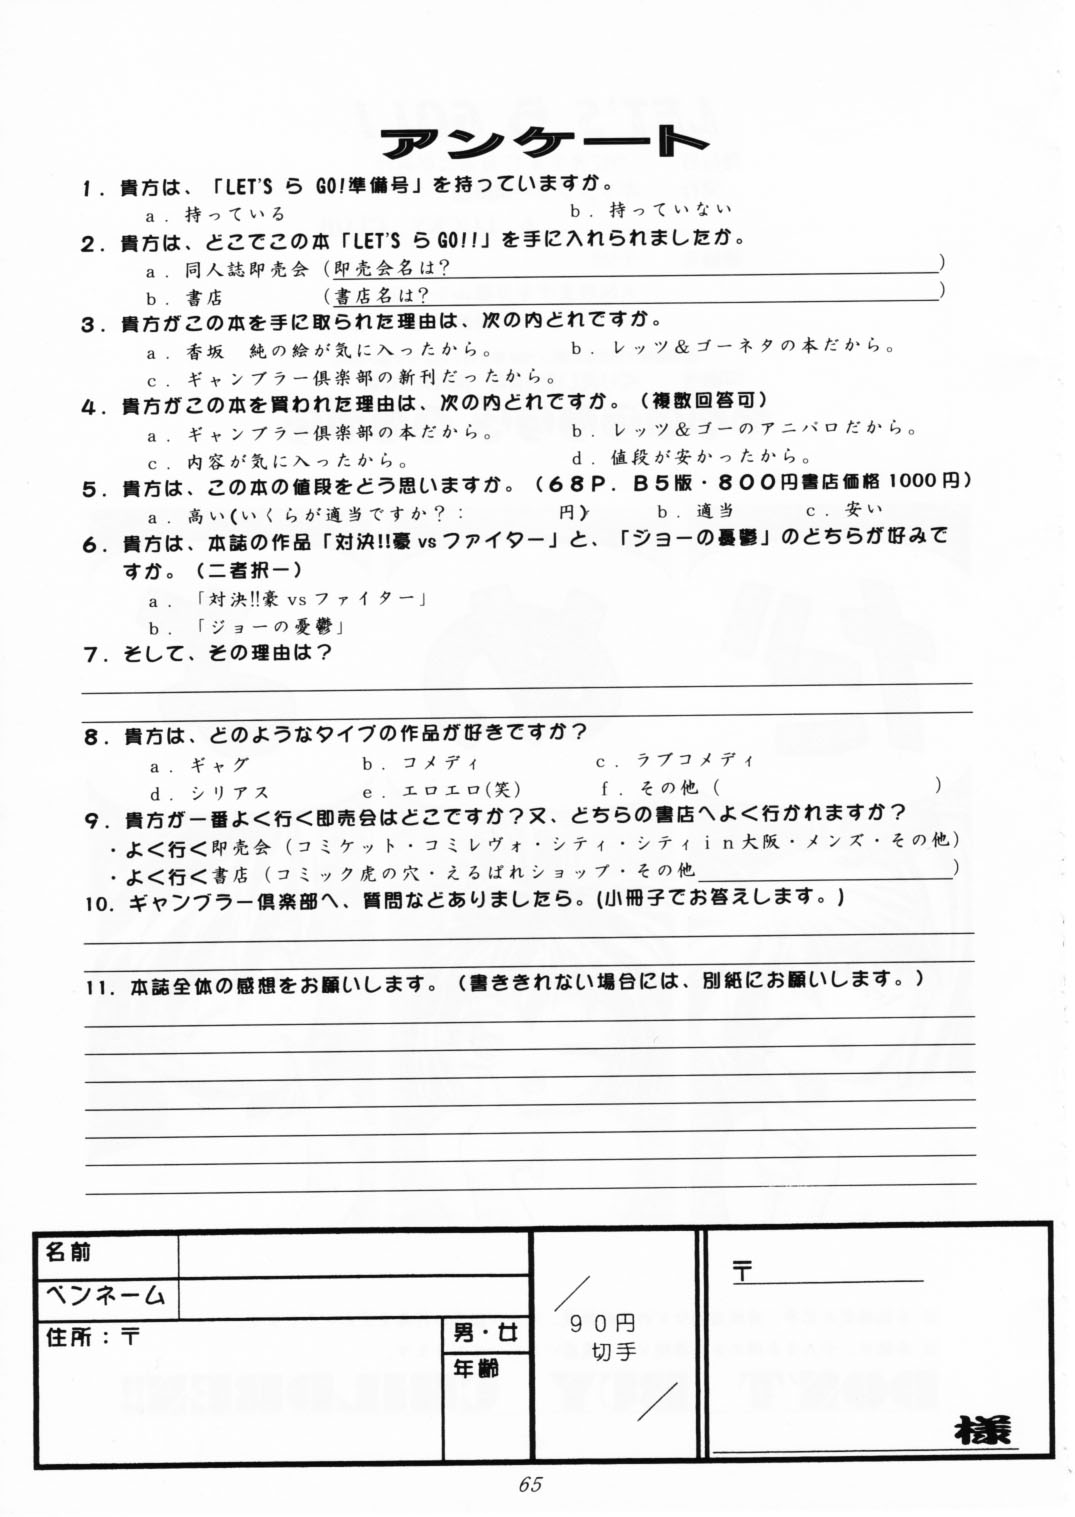 アンケート
1．貴方は、「LET'S ら GO!準備号」を持っていますか。
a．持っている b．持っていない
2．貴方は、どこでこの本「LET'S らGO!!」を手に入れられましたか。
a．同人誌即売会（即売会名は? ）
b．書店 （書店名は? ）
3．貴方がこの本を手に取られた理由は、次の内どれですか。
a．香坂 純の絵が気に入ったから。 b．レッツ＆ゴーネタの本だから。
c．ギャンブラー倶楽部の新刊だったから。
4．貴方がこの本を買われた理由は、次の内どれですか。（複数回答可）
a．ギャンブラー倶楽部の本だから。 b．レッツ＆ゴーのアニパロだから。
c．内容が気に入ったから。 d．値段が安かったから。
5．貴方は、この本の値段をどう思いますか。（68P．B5版・800円書店価格1000円）
a．高い(いくらが適当ですか？： 円) b．適当 c．安い
6．貴方は、本誌の作品「対決!!豪vsファイター」と、「ジョーの憂鬱」のどちらが好みで
すか。（二者択一）
a．「対決!!豪vsファイター」
b．「ジョーの憂鬱」
7．そして、その理由は？
8．貴方は、どのようなタイプの作品が好きですか？
a．ギャグ b．コメディ c．ラブコメディ
d．シリアス e．エロエロ(笑) f．その他（ ）
9．貴方が一番よく行く即売会はどこですか？又、どちらの書店へよく行かれますか？
・よく行く即売会（コミケット・コミレヴォ・シティ・シティin大阪・メンズ・その他）
・よく行く書店（コミック虎の穴・えるぱれショップ・その他 ）
10．ギャンブラー倶楽部へ、質問などありましたら。(小冊子でお答えします。)
11．本誌全体の感想をお願いします。（書ききれない場合には、別紙にお願いします。）
名前
ペンネーム
住所：〒
男・女
年齢
／
90円
切手
／
〒
様
65